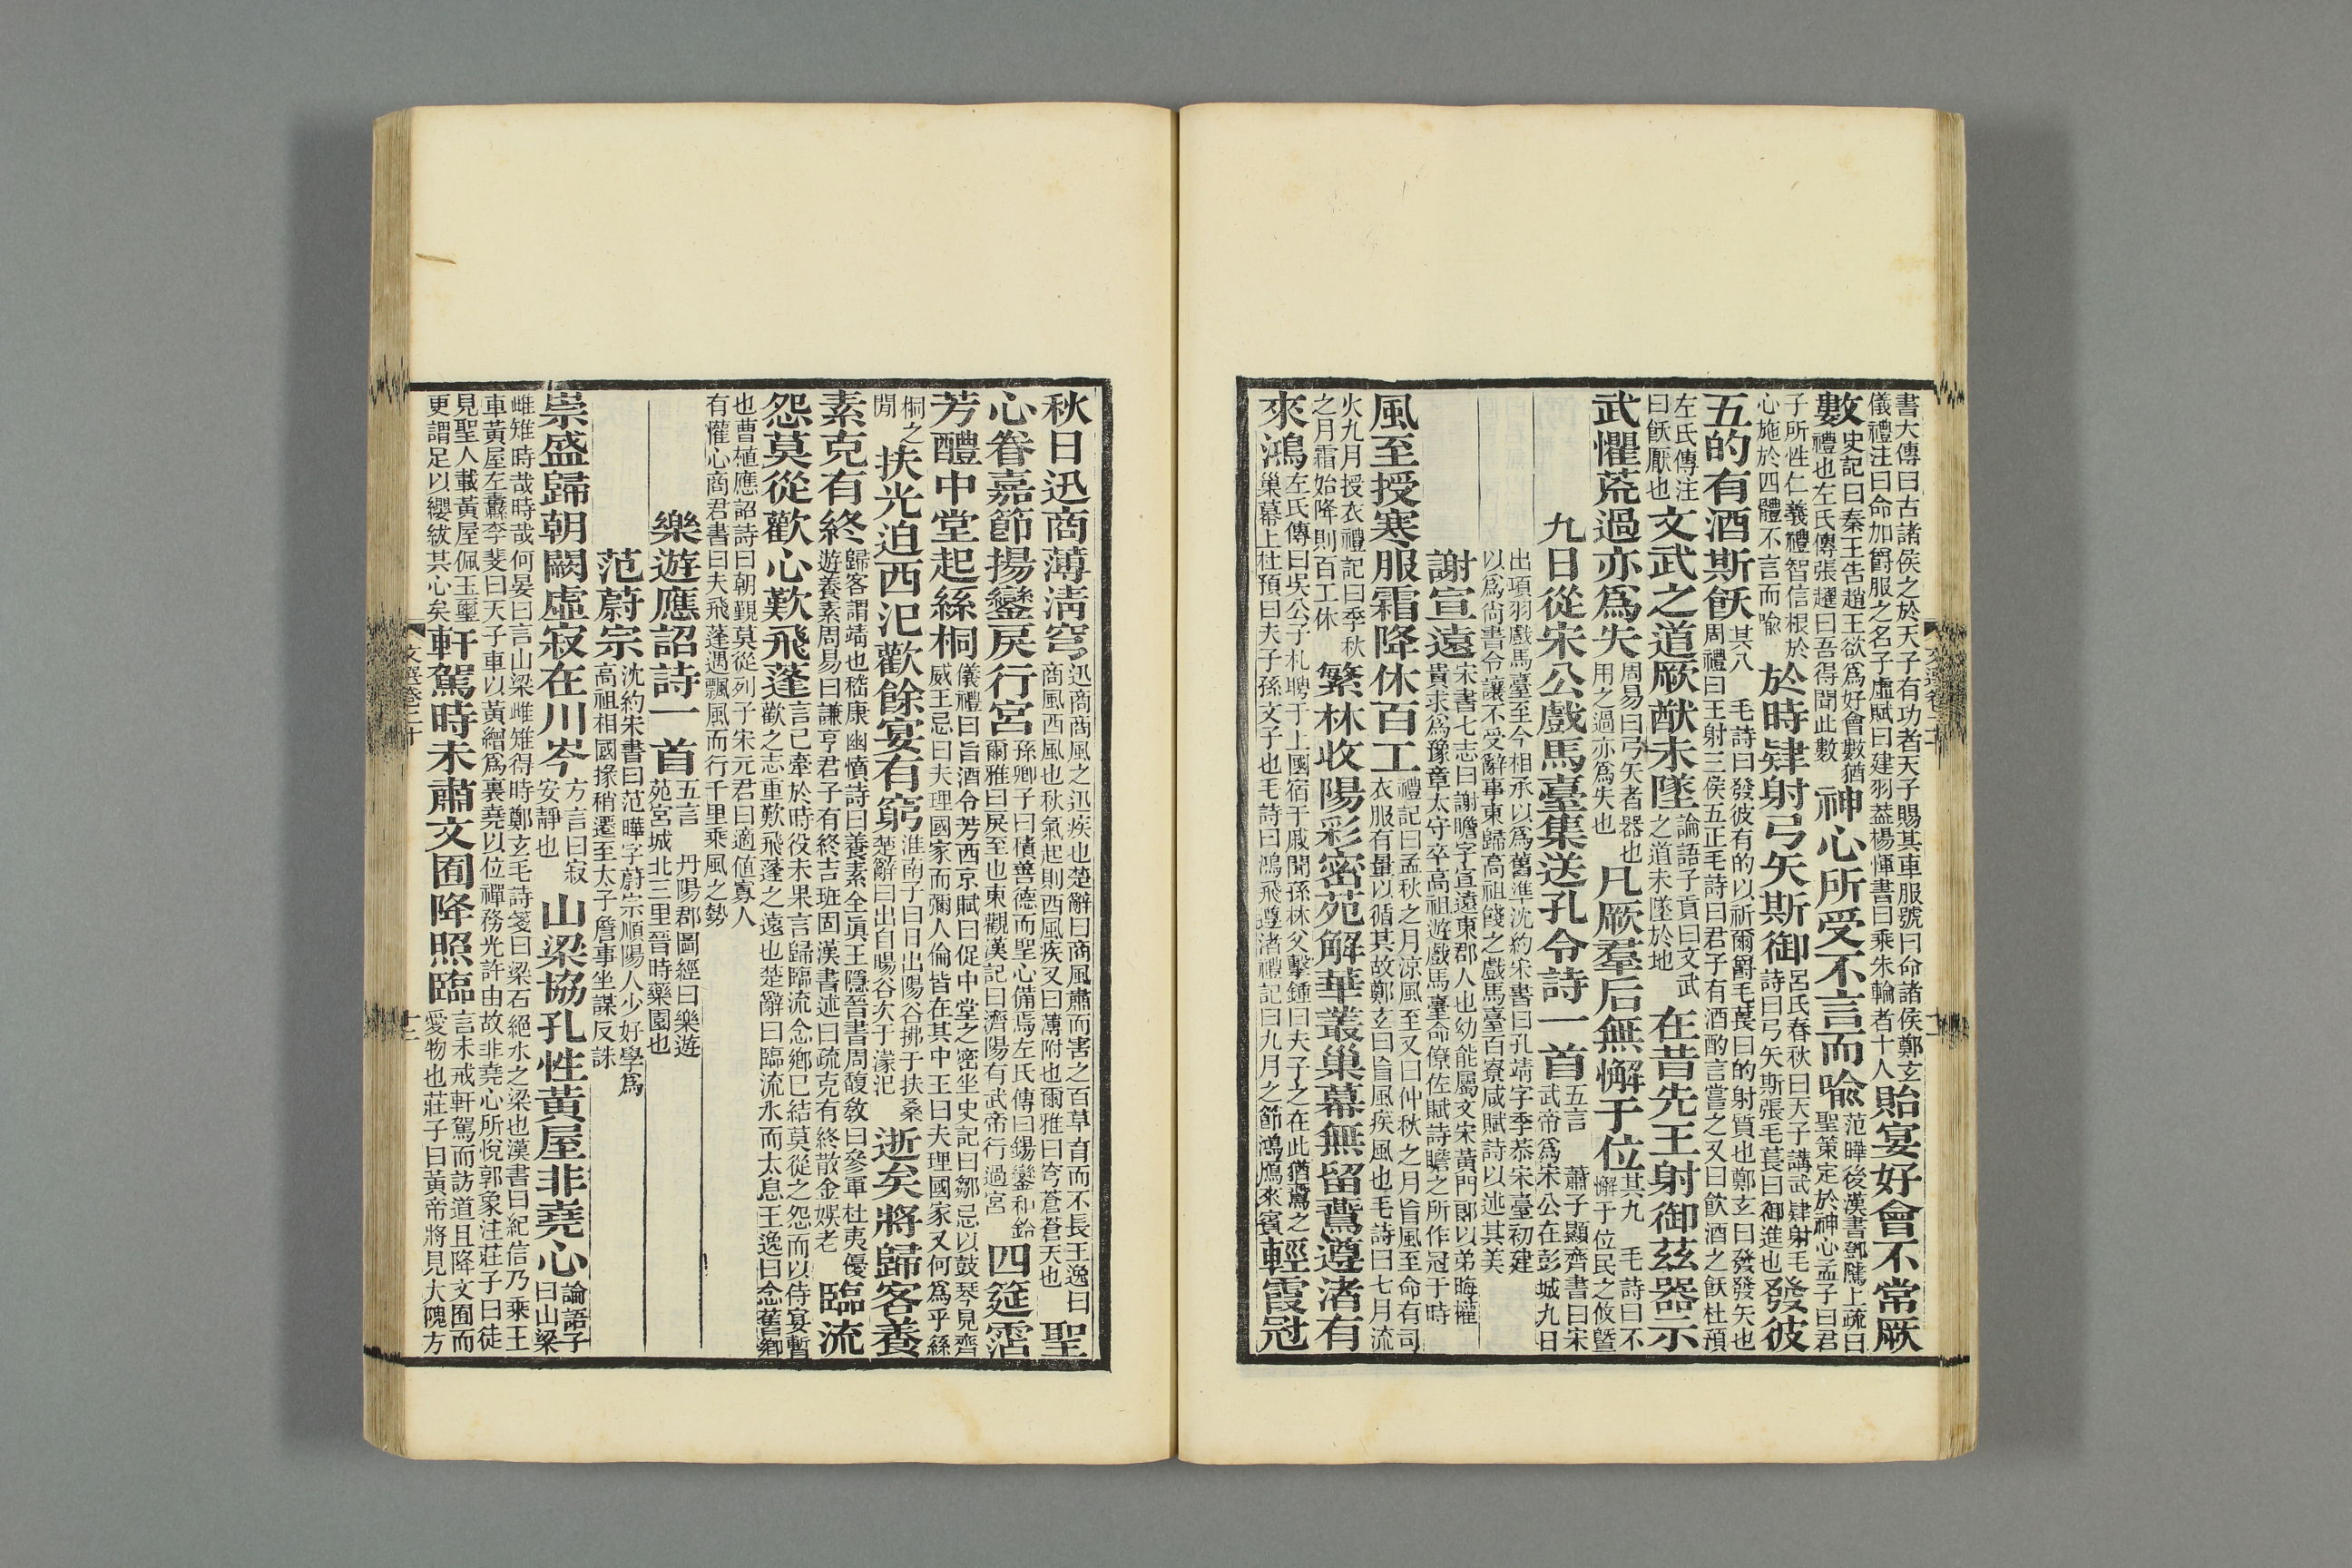 書大傳曰古諸侯之於天子有功者天子賜其車服號曰命諸侯鄭玄
儀禮注曰命加爵服之名子虛賦曰建羽葢楊惲書曰乘朱輪者十人
貽宴好會不常厥
數
史記曰秦王告趙王欲爲好會數猶
禮也左氏傳張趯曰吾得聞此數
神心所受不言而喻
范曄後漢書鄧隲上疏曰
聖策定於神心孟子曰君
子所性仁義禮智信根於
心施於四體不言而喻
於時肄射弓矢斯御
呂氏春秋曰天子講武肄射毛
詩曰弓矢斯張毛萇曰御進也
發彼
五的有酒斯飫
其八 毛詩曰發彼有的以祈爾爵毛萇曰的射質也鄭玄曰發發矢也
周禮曰王射三侯五正毛詩曰君子有酒酌言嘗之又曰飲酒之飫杜預
左氏傳注
曰飫厭也
文武之道厥猷未墜
論語子貢曰文武
之道未墜於地
在昔先王射御茲器示
武懼荒過亦爲失
周易曰弓矢者器也
用之過亦爲失也
凡厥羣后無懈于位
其九 毛詩曰不
懈于位民之攸曁
九日從宋公戲馬臺集送孔令詩一首
五言 蕭子顯齊書曰宋
武帝爲宋公在彭城九日
出項羽戲馬臺至今相承以爲舊準沈約宋書曰孔靖字季恭宋臺初建
以爲尚書令讓不受辭事東歸高祖餞之戲馬臺百寮咸賦詩以述其美
謝宣遠
宋書七志曰謝瞻字宣遠東郡人也幼能屬文宋黃門郎以弟晦權
貴求爲豫章太守卒高祖遊戲馬臺命僚佐賦詩瞻之所作冠于時
風至授寒服霜降休百工
禮記曰孟秋之月涼風至又曰仲秋之月盲風至命有司
衣服有量以循其故鄭玄曰盲風疾風也毛詩曰七月流
火九月授衣禮記曰季秋
之月霜始降則百工休
繁林收陽彩密苑解華叢巢幕無留鷰遵渚有
來鴻
左氏傳曰吳公子札聘于上國宿于戚聞孫林父擊鍾曰夫子之在此猶鷰之
巢幕上杜預曰夫子孫文子也毛詩曰鴻飛遵渚禮記曰九月之節鴻鴈來賓
輕霞冠
秋日迅商薄淸穹
迅商商風之迅疾也楚辭曰商風肅而害之百草育而不長王逸曰
商風西風也秋氣起則西風疾又曰薄附也爾雅曰穹蒼蒼天也
聖
心眷嘉節揚鑾戾行宮
孫卿子曰積善德而聖心備焉左氏傳曰鍚鑾和鈴
爾雅曰戾至也東觀漢記曰濟陽有武帝行過宮
四筵霑
芳醴中堂起絲桐
儀禮曰旨酒令芳西京賦曰促中堂之密坐史記曰鄒忌以鼓琴見齊
威王忌曰夫理國家而彌人倫皆在其中王曰夫理國家又何爲乎絲
桐之
閒
扶光迫西汜歡餘宴有窮
淮南子曰日出陽谷拂于扶桑
楚辭曰出自陽谷次于濛汜
逝矣將歸客養
素克有終
歸客謂靖也嵇康幽憤詩曰養素全眞王隱晉書周馥敎曰參軍杜夷優
遊養素周易曰謙亨君子有終吉班固漢書述曰疏克有終散金娛老
臨流
怨莫從歡心歎飛蓬
言己牽於時役未果言歸臨流念鄉已結莫從之怨而以侍宴暫
歡之志重歎飛蓬之遠也楚辭曰臨流水而太息王逸曰念舊鄉
也曹植應詔詩曰朝覲莫從列子宋元君曰適値寡人
有懽心商君書曰夫飛蓬遇飄風而行千里乘風之勢
樂遊應詔詩一首
五言 丹陽郡圖經曰樂遊
苑宮城北三里晉時藥園也
范蔚宗
沈約宋書曰范曄字蔚宗順陽人少好學爲
高祖相國掾稍遷至太子詹事坐謀反誅
崇盛歸朝闕虛寂在川岑
方言曰寂
安靜也
山梁協孔性黃屋非堯心
論語子
曰山梁
雌雉時哉時哉何晏曰言山梁雌雉得時鄭玄毛詩箋曰梁石絕水之梁也漢書曰紀信乃乘王
車黃屋左纛李斐曰天子車以黃繒爲裏堯以位禪務光許由故非堯心所悅郭象注莊子曰徒
見聖人載黃屋佩玉璽
更謂足以纓紱其心矣
軒駕時未肅文囿降照臨
言未戒軒駕而訪道且降文囿而
愛物也莊子曰黃帝將見大隗方
文選卷二十
十二